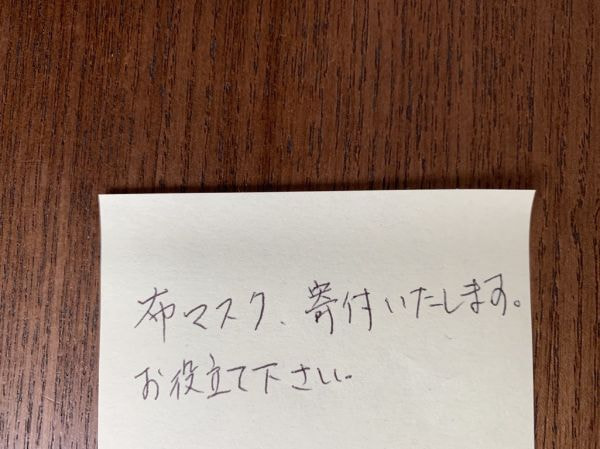 布マスク、寄付いたします。
お役立て下さい。